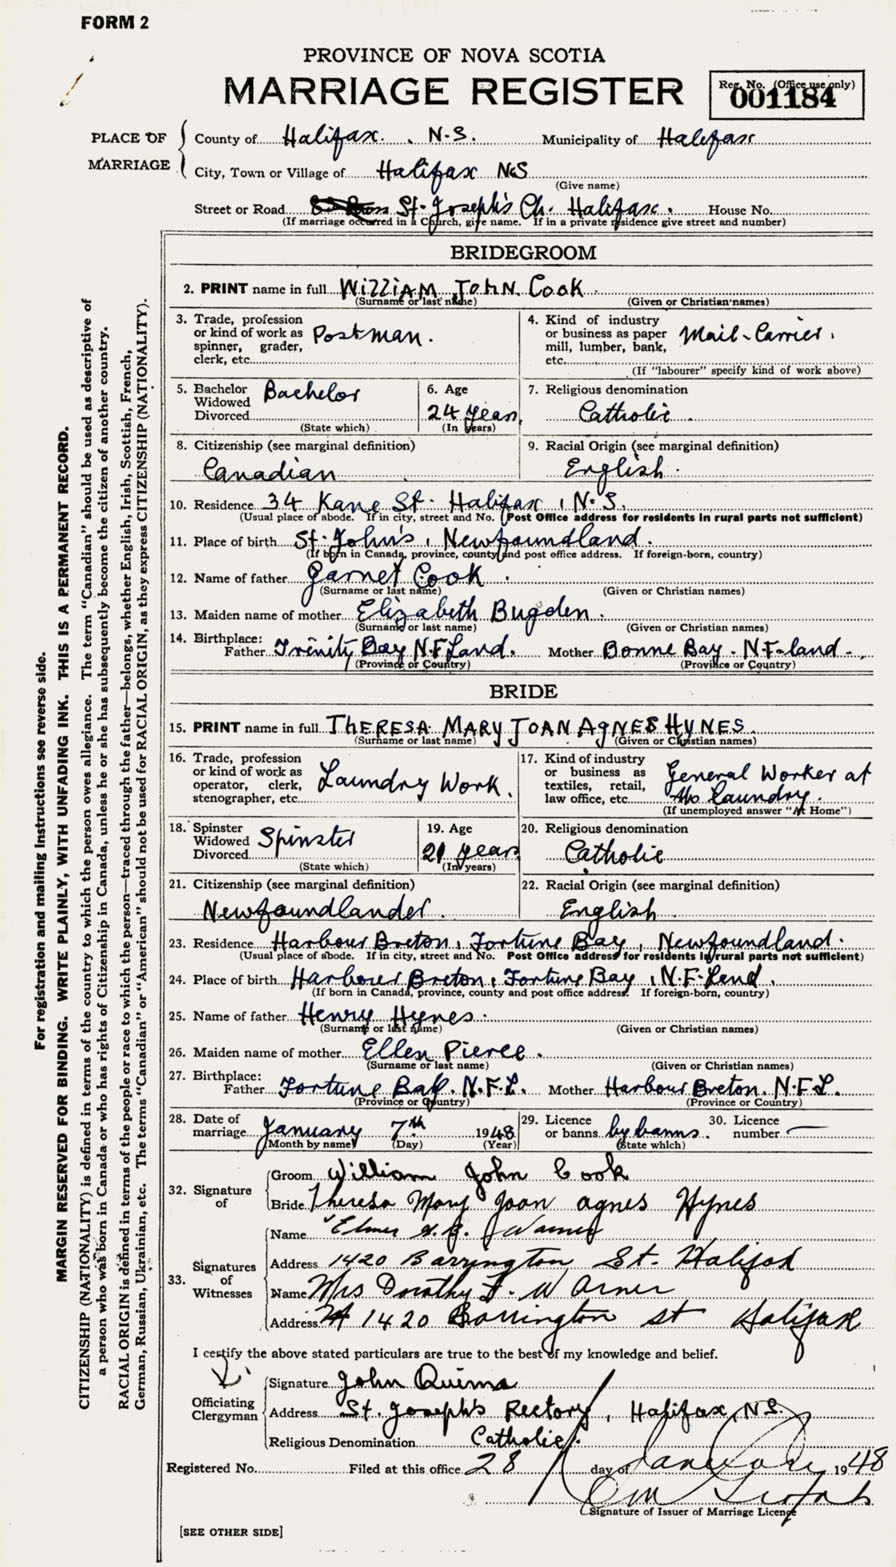 FORM 2
PROVINCE OF NOVA SCOTIA
MARRIAGE REGISTER
Reg. No. (Office use only)
001184
PLACE OF MARRIAGE
County of Halifax. N.S. Municipality of Halifax
City, Town or Village of Halifax N.S
(Give name)
Street or Road St. Joseph's Ch. Halifax. House No.
(If marriage occurred in a Church, give name. If in a private residence give street and number)
BRIDEGROOM
2. PRINT name in full WILLIAM JOHN Cook
(Surname or last name) (Given or Christian names)
3. Trade, profession or kind of work as spinner, grader, clerk, etc. Postman.
4. Kind of industry or business as paper mill, lumber, bank, etc. Mail-Carrier.
(If "labourer" specify kind of work above)
5. Bachelor Widowed Divorced Bachelor
(State which)
6. Age 24 years
(In years)
7. Religious denomination
Catholic
8. Citizenship (see marginal definition)
Canadian
9. Racial Origin (see marginal definition)
English.
10. Residence 34 Kane St. Halifax, N.S.
(Usual place of abode. If in city, street and No. Post Office address for residents in rural parts not sufficient)
11. Place of birth St. John's, Newfoundland.
(If born in Canada, province, county and post office address. If foreign-born, country)
12. Name of father Garnet Cook.
(Surname or last name) (Given or Christian names)
13. Maiden name of mother Elizabeth Bugden.
(Surname or last name) (Given or Christian names)
14. Birthplace: Father Trinity Bay N.F.Land. Mother Bonne Bay. N.F-land.
(Province or Country) (Province or Country)
BRIDE
15. PRINT name in full THERESA MARY JOAN AGNES HYNES
(Surname or last name) (Given or Christian names)
16. Trade, profession or kind of work as operator, clerk, stenographer, etc. Laundry Work.
17. Kind of industry or business as textiles, retail, law office, etc. General Worker at Laundry.
(If unemployed answer "At Home")
18. Spinster Widowed Divorced Spinster
(State which)
19. Age 21 years
(In years)
20. Religious denomination
Catholic
21. Citizenship (see marginal definition)
Newfoundlander.
22. Racial Origin (see marginal definition)
English.
23. Residence Harbour Breton, Fortune Bay, Newfoundland.
(Usual place of abode. If in city, street and No. Post Office address for residents in rural parts not sufficient)
24. Place of birth Harbour Breton, Fortune Bay, N.F.Land.
(If born in Canada, province, county and post office address. If foreign-born, country)
25. Name of father Henry Hynes.
(Surname or last name) (Given or Christian names)
26. Maiden name of mother Ellen Pierce.
(Surname or last name) (Given or Christian names)
27. Birthplace: Father Fortune Bay. N.F.L. Mother Harbour Breton. N.F.L.
(Province or Country) (Province or Country)
28. Date of marriage January 7th 1948
(Month by name) (Day) (Year)
29. Licence or banns by banns.
(State which)
30. Licence number —
32. Signature of
Groom William John Cook
Bride Theresa Mary Joan Agnes Hynes
33. Signatures of Witnesses
Name Elmer Warner
Address 1420 Barrington St. Halifax
Name Mrs Dorothy F. Warner
Address 1420 Barrington St Halifax
I certify the above stated particulars are true to the best of my knowledge and belief.
Officiating Clergyman
Signature John Quinn
Address St. Joseph's Rectory, Halifax, N.S.
Religious Denomination Catholic.
Registered No. Filed at this office 28 day of January 1948
Signature of Issuer of Marriage Licence
[SEE OTHER SIDE]
For registration and mailing instructions see reverse side.
MARGIN RESERVED FOR BINDING. WRITE PLAINLY, WITH UNFADING INK. THIS IS A PERMANENT RECORD.
CITIZENSHIP (NATIONALITY) is defined in terms of the country to which the person owes allegiance. The term "Canadian" should be used as descriptive of
a person who was born in Canada or who has rights of Citizenship in Canada, unless he or she has subsequently become the citizen of another country.
RACIAL ORIGIN is defined in terms of the people or race to which the person—traced through the father—belongs, whether English, Irish, Scottish, French,
German, Russian, Ukrainian, etc. The terms "Canadian" or "American" should not be used for RACIAL ORIGIN, as they express CITIZENSHIP (NATIONALITY).